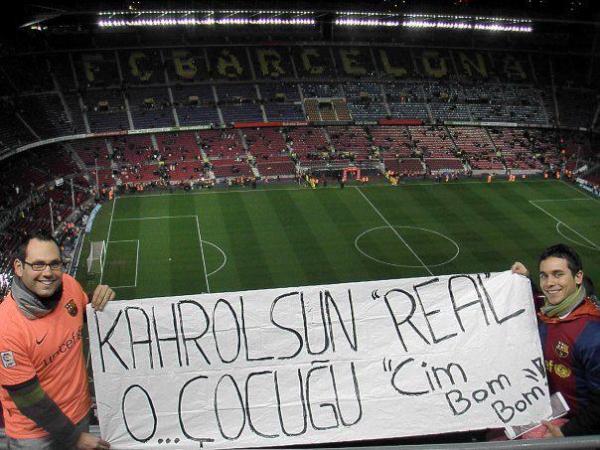 FC BARCELONA
KAHROLSUN "REAL"
O... ÇOCUĞU "Cim
Bom
Bom"!
unicef